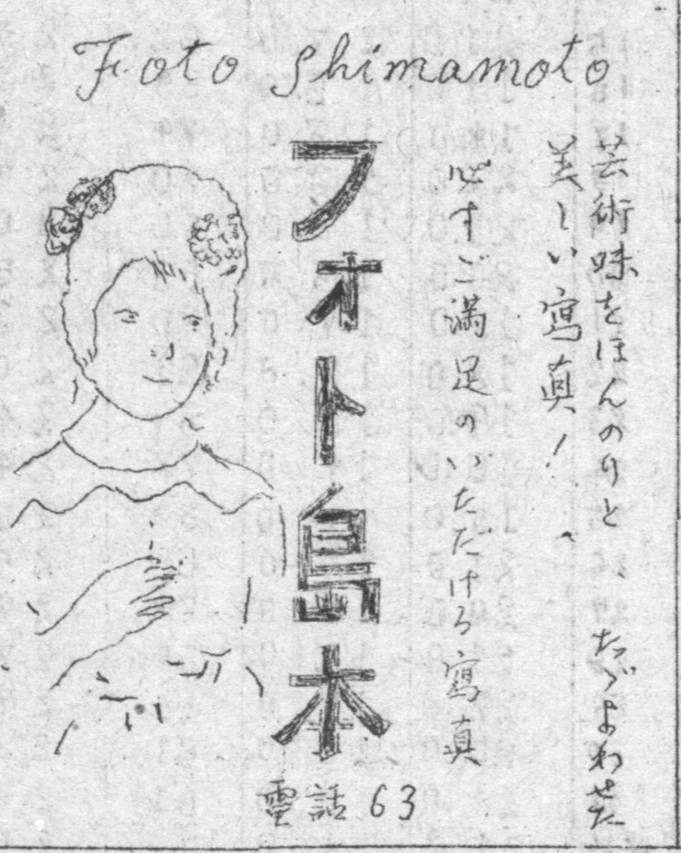 Foto Shimamoto
芸術味をほんのりと、たゞよわせた
美しい寫真！
必すご満足のいただける寫真
フォト島本
電話 63